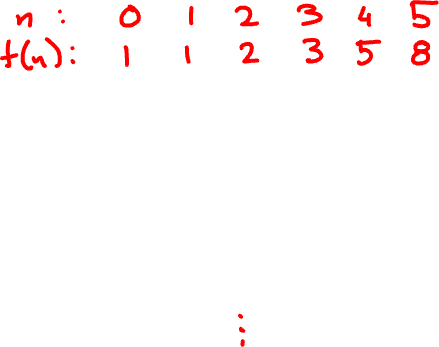 n : 0 1 2 3 4 5
f(n): 1 1 2 3 5 8
⋮